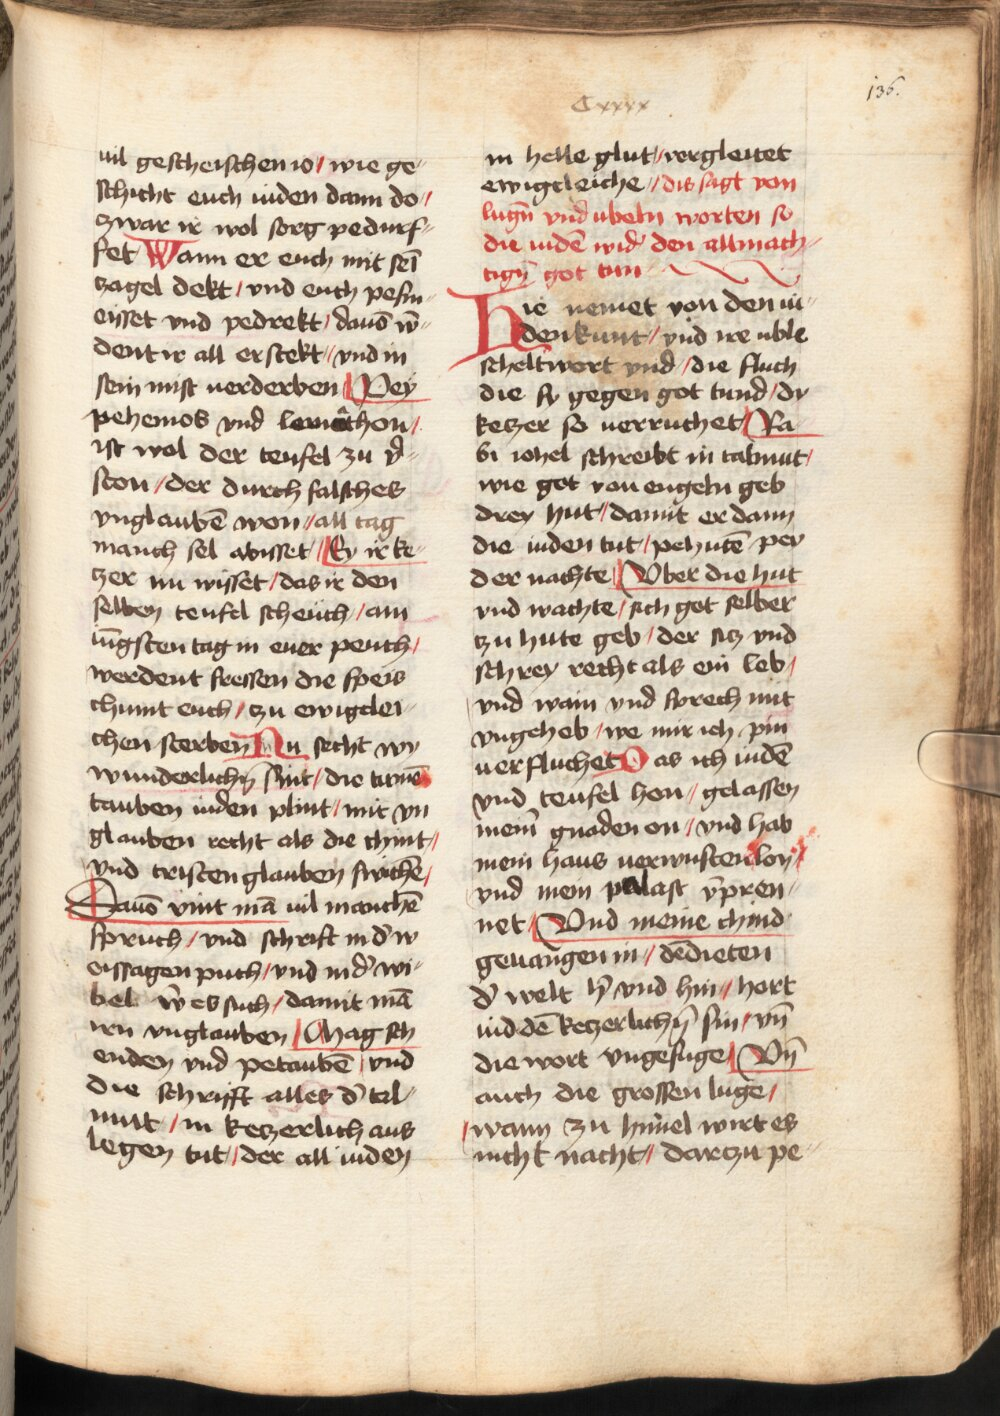 136.
Cxxxx
uil gescheischen io / wie ge-
schicht euch iuden dann do /
zwar ir wol sorg pedurf-
fet Wann er euch mit sei͂
zagel dekt / vnd euch pesm-
eisset vnd pedrekt / dauō w̄-
dent ir all erstekt / vnd in
sein mist uerderben / Pey
pehemos vnd leuiathon /
ist wol der teufel zu v̄-
ston / der durch falsches
vnglaubē won / all tag
manch sel abisset / Ey ir ke-
tzer nu wisset / das ir den
selben teufel scheuch / am
iūgsten tag in euer peuch /
werdent fressen die speis
chumt euch / zu ewiglei-
chen sterben Nu secht wy
wunderlichn̄ sint / die tumē
tauben iuden plint / mit vn
glauben recht als die chint /
vnd cristenglauben swichē /
Dauō vint mā uil manchē
spruch / vnd schrift in d̄ w
eissagen puch / vnd in d̄ wi-
bel w̄ es such / damit mā
irn vnglauben / Mag sch
enden vnd petaubē / vnd
die schrifft alles d̄ tal-
mut / in ketzerlich aus
legen tut / der all iuden
in helle glut / vergleitet
ewigcleiche / dis sagt von
lugn̄ vnd ubeln worten so
die iudē wid̄ den allmach-
tign̄ got tun
Hie nemet von den iu-
den kunt / vnd ire uble
scheltwort vnd / die fluch
die sy gegen got tund / dy
ketzer so uerruchet / Ra-
bi iohel schreibt in talmut /
wie got von engeln geb
drey hut / damit er dann
die iuden tut / pehutē pey
der nachte / Vber die hut
vnd wachte / sich got selber
zu hute geb / der sitz vnd
schrey recht als ein leb /
vnd wain vnd sprech mit
vngeheb / we mir ich pin
uerfluchet Das ich iudē
vnd teufel hon / gelassen
mein̄ gnaden on / vnd hab
mein haus uerwusten lon /
vnd mein palast v̄pren-
net / Vnd meine chind
geuangen in / dē dieten
d̄ welt h̄ vnd hin / hort
iud dē ketzerlichn̄ sin / vn̄
die wort vngefuge / Vn̄
auch die grossen luge /
wann zu himel wirt es
nicht nacht / darczu pe-